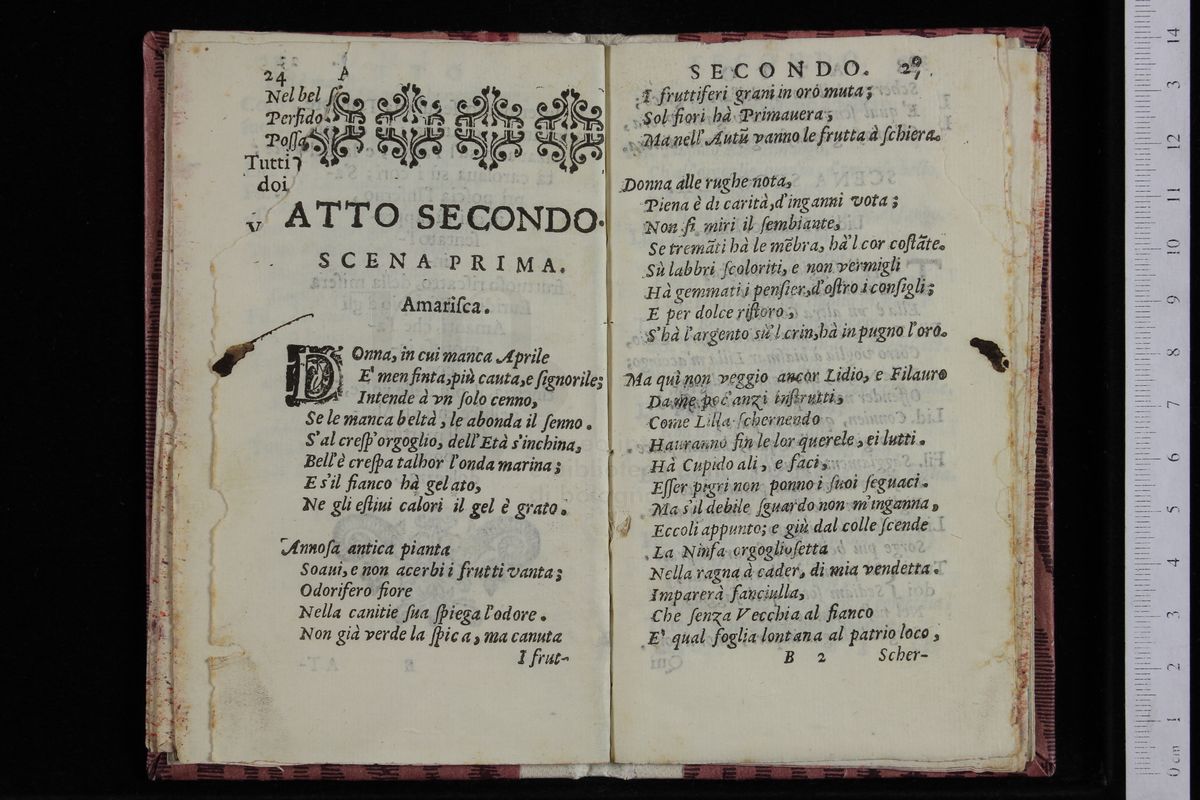 24 A
Nel bel ſ
Perfido
Poſſa
Tutti
doi
V
ATTO SECONDO.
SCENA PRIMA.
Amariſca.
Donna, in cui manca Aprile
E' men finta, più cauta, e ſignorile;
Intende à vn ſolo cenno,
Se le manca beltà, le abonda il ſenno.
S'al creſp'orgoglio, dell'Età s'inchina,
Bell'è creſpa talhor l'onda marina;
E s'il fianco hà gelato,
Ne gli eſtiui calori il gel è grato.
Annoſa antica pianta
Soaui, e non acerbi i frutti vanta;
Odorifero fiore
Nella canitie ſua ſpiega l'odore.
Non già verde la ſpica, ma canuta
I frut-
SECONDO.
I fruttiferi grani in oro muta;
Sol fiori hà Primauera;
Ma nell' Autũ vanno le frutta à ſchiera.
Donna alle rughe nota,
Piena è di carità, d'inganni vota;
Non ſi miri il ſembiante,
Se tremãti hà le mẽbra, hà'l cor coſtãte.
Sù labbri ſcoloriti, e non vermigli
Hà gemmati i penſier, d'oſtro i conſigli;
E per dolce riſtoro,
S'hà l'argento sù'l crin, hà in pugno l'oro.
Ma quì non veggio ancor Lidio, e Filauro
Da me poc'anzi inſtrutti,
Come Lilla ſchernendo
Hauranno fin le lor querele, ei lutti.
Hà Cupido ali, e faci,
Eſſer pigri non ponno i ſuoi ſeguaci.
Ma s'il debile ſguardo non m'inganna,
Eccoli appunto; e giù dal colle ſcende
La Ninfa orgoglioſetta
Nella ragna à cader, di mia vendetta.
Imparerà fanciulla,
Che ſenza Vecchia al fianco
E' qual foglia lontana al patrio loco,
B 2 Scher-
0 cm 1 2 3 4 5 6 7 8 9 10 11 12 13 14